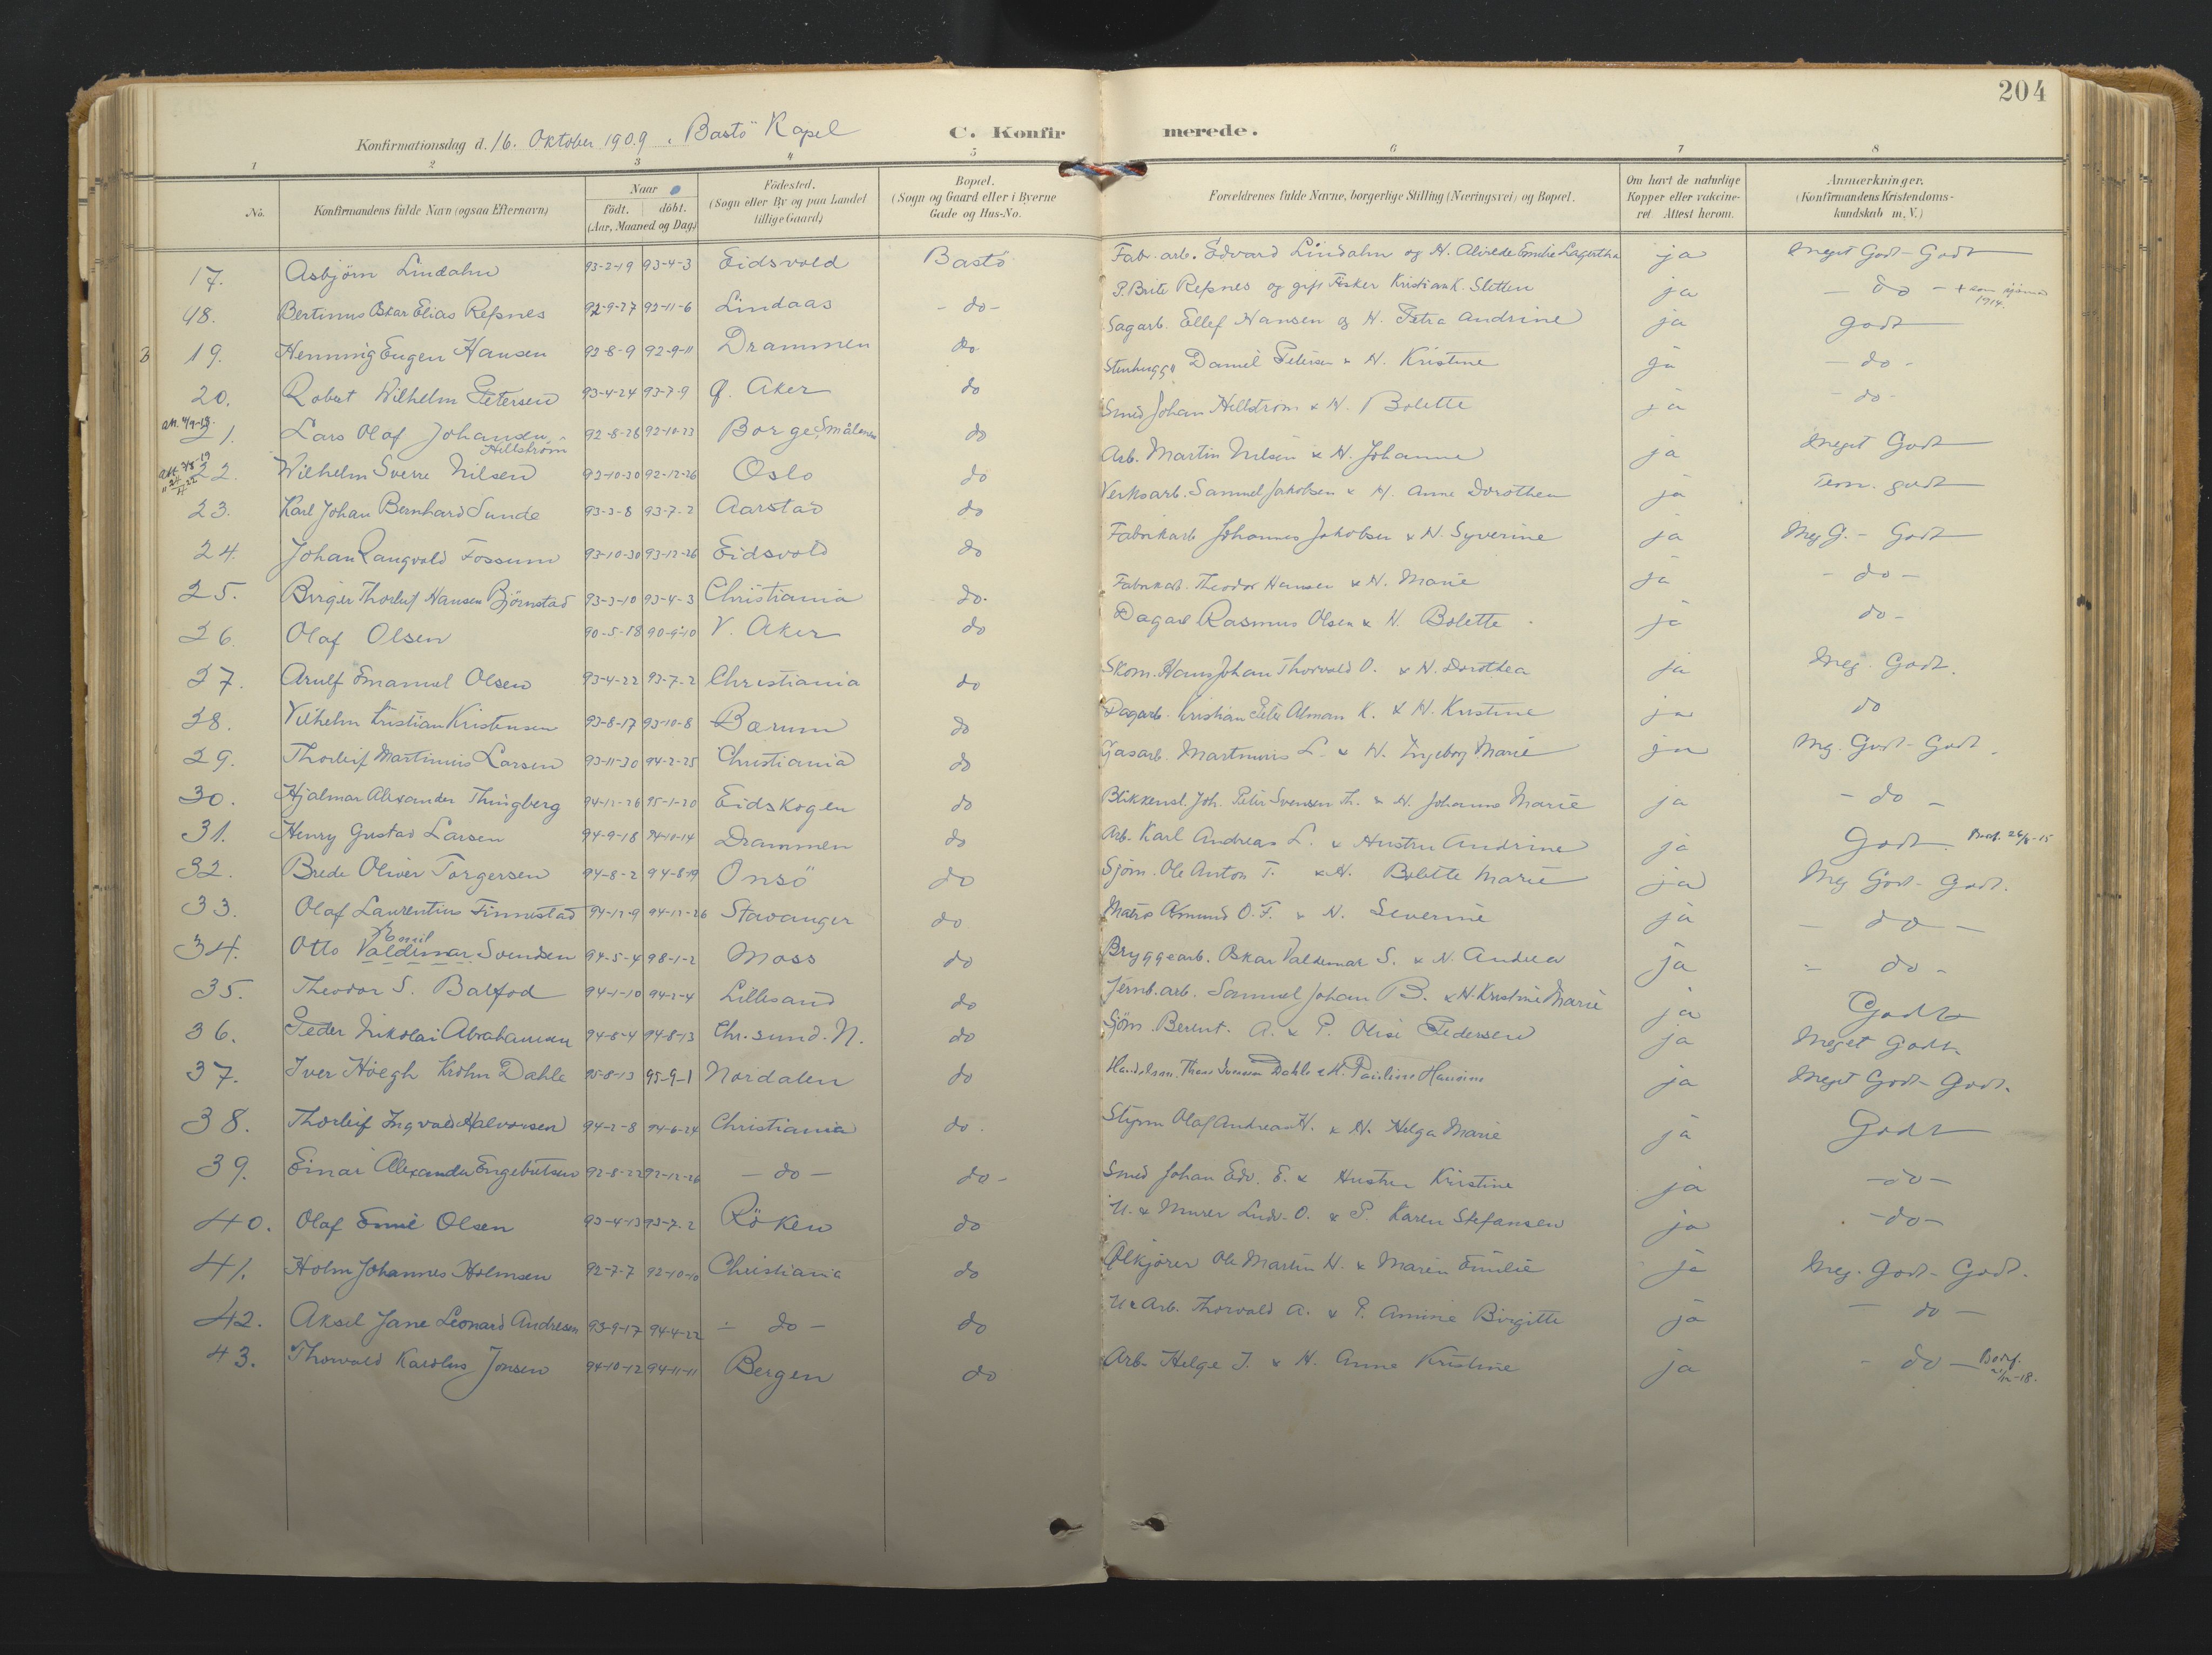 204
Konfirmationsdag d. 16. Oktober 1909, Bastö Kapel C. Konfirmerede.
1 2 3 4 5 6 7 8
No. Konfirmandens fulde Navn (ogsaa Efternavn) Naar födt. döbt. (Aar, Maaned og Dag) Födested. (Sogn eller By og paa Landet tillige Gaard) Bopæl. (Sogn og Gaard eller i Byerne Gade og Hus-No. Forældrenes fulde Navne, borgerlige Stilling (Næringsvei) og Bopæl. Om havt de naturlige Kopper eller vakcineret. Attest herom. Anmærkninger. (Konfirmandens Kristendomskundskab m. V.)
17. Asbjörn Lindahn 93-2-19 93-4-3 Eidsvold Bastö Fab. arb. Edvard Lindahn og H. Alvilde Emilie Lagertha ja Meget Godt-Godt
18. Bertinus Oskar Elias Refsnes 92-9-27 92-11-6 Lindaas -do- P. Brite Refsnes og gift Fisker Kristian K. Sletten ja - do - + som sjömand 1914.
3 19. Henning Eugen Hansen 92-8-9 92-9-11 Drammen do Sagarb. Ellef Hansen og H. Petra Andrine ja godt
20. Robert Wilhelm Petersen 93-4-24 93-7-9 Ø. Aker do Stenhugger Daniel Petersen & H. Kristine ja - do -
21. Lars Olaf Johansen Hellström 92-8-28 92-10-23 Borge, Smålenene do Smed Johan Hellström & H. Bolette ja - do -
22. Wilhelm Sverre Nilsen 92-10-30 92-12-26 Oslo do Arb. Martin Nilsen & H. Johanne ja Meget Godt
23. Karl Johan Bernhard Sunde 93-3-8 93-7-2 Aarstad do Verksarb. Samuel Jakobsen & H. Anne Dorothea ja Tem. godt
24. Johan Rangvald Fossum 93-10-30 93-12-26 Eidsvold do Fabrikarb Johannes Jakobsen & H. Syverine ja Meg G. - Godt
25. Birger Thorleif Hansen Björnstad 93-3-10 93-4-3 Christiania do. Fabrikarb. Theodor Hansen & H. Marie ja - do -
26. Olaf Olsen 90-5-18 90-9-10 V. Aker do Dagarb Rasmus Olsen & H. Bolette ja do -
27. Arnlf Emanuel Olsen 93-4-22 93-7-2 Christiania do Skom. Hans Johan Thorvald O. & H. Dorothea ja Meg. Godt.
28. Vilhelm Kristian Kristensen 93-8-17 93-10-8 Bærum do Dagarb. Kristian Peter Alman K. & H. Kristine ja do
29. Thorleif Martinius Larsen 93-11-30 94-2-25 Christiania do Gasarb. Martinius L. & H. Ingeborg Marie ja Meg. Godt-Godt.
30. Hjalmar Alexander Thingberg 94-12-26 95-1-20 Eidskogen do Blikkensl. Joh. Peter Svensen Th. & H. Johanne Marie ja - do -
31. Henry Gustav Larsen 94-9-18 94-10-14 Drammen do Arb. Karl Andreas L. & Hustru Andrine ja Godt. Bort. 26/8-15
32. Brede Oliver Torgersen 94-8-2 94-8-19 Onsö do Sjöm. Ole Anton T. & H. Bolette Marie ja Meg Godt-Godt.
33. Olaf Laurentius Finnestad 94-12-9 94-12-26 Stavanger do Matros Amund O. F. & H. Severine ja - do -
34. Otto Emil Valdemar Svendsen 94-5-4 98-1-2 Moss do Bryggearb. Oskar Valdemar S. & H. Andrea ja - do -
35. Theodor S. Balfod 94-1-10 94-2-4 Lillesand do Jernb. arb. Samuel Johan B. & H. Kristine Marie ja Godt
36. Peder Nikolai Abrahamsen 94-8-4 94-8-13 Chr. sund. N. do Sjöm. Berent. A. & P. Olise Pedersen ja Meget Godt.
37. Iver Höegh Krohn Dahle 95-8-13 95-9-1 Nordalen do Handelsm. Dahle & H. Pauline Hansine ja Meget Godt-Godt.
38. Thorleif Ingvald Halvorsen 94-2-8 94-6-24 Christiania do. Styrm Olaf Andreas H. & H. Helga Marie ja Godt
39. Einar Alexander Engebretsen 92-8-22 92-12-26 - do - do - Smed Johan Edv. E. & Hustru Kristine ja - do -
40. Olaf Emil Olsen 93-4-13 93-7-2 Röken do U. & Murer Ludv. O. & P. Karen Stefansen ja - do -
41. Holm Johannes Holmsen 92-7-7 92-10-10 Christiania do Ølkjörer Ole Martin H. & Maren Emilie ja Meg. Godt-Godt.
42. Aksel Jane Leonard Andresen 93-9-17 94-4-22 - do - do U & Arb. Thorvald A. & P. Amine Birgitte ja - do -
43. Thorvald Karolus Jonsen 94-10-12 94-11-11 Bergen do Arb. Helge J. & H. Anne Kristine ja - do - Bortf. 21/12-18.